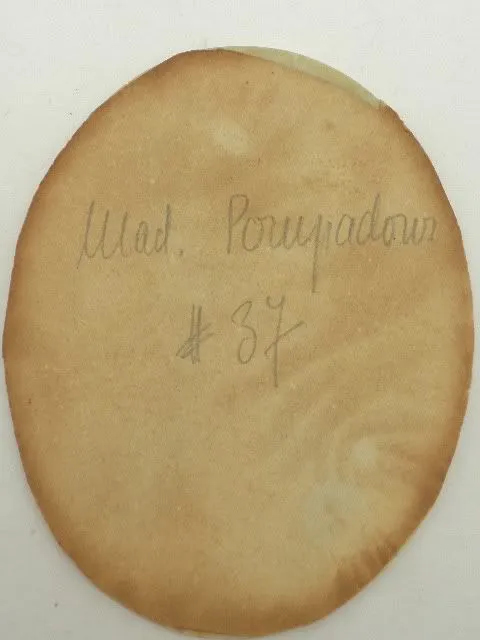 Mad. Pompadour
# 37